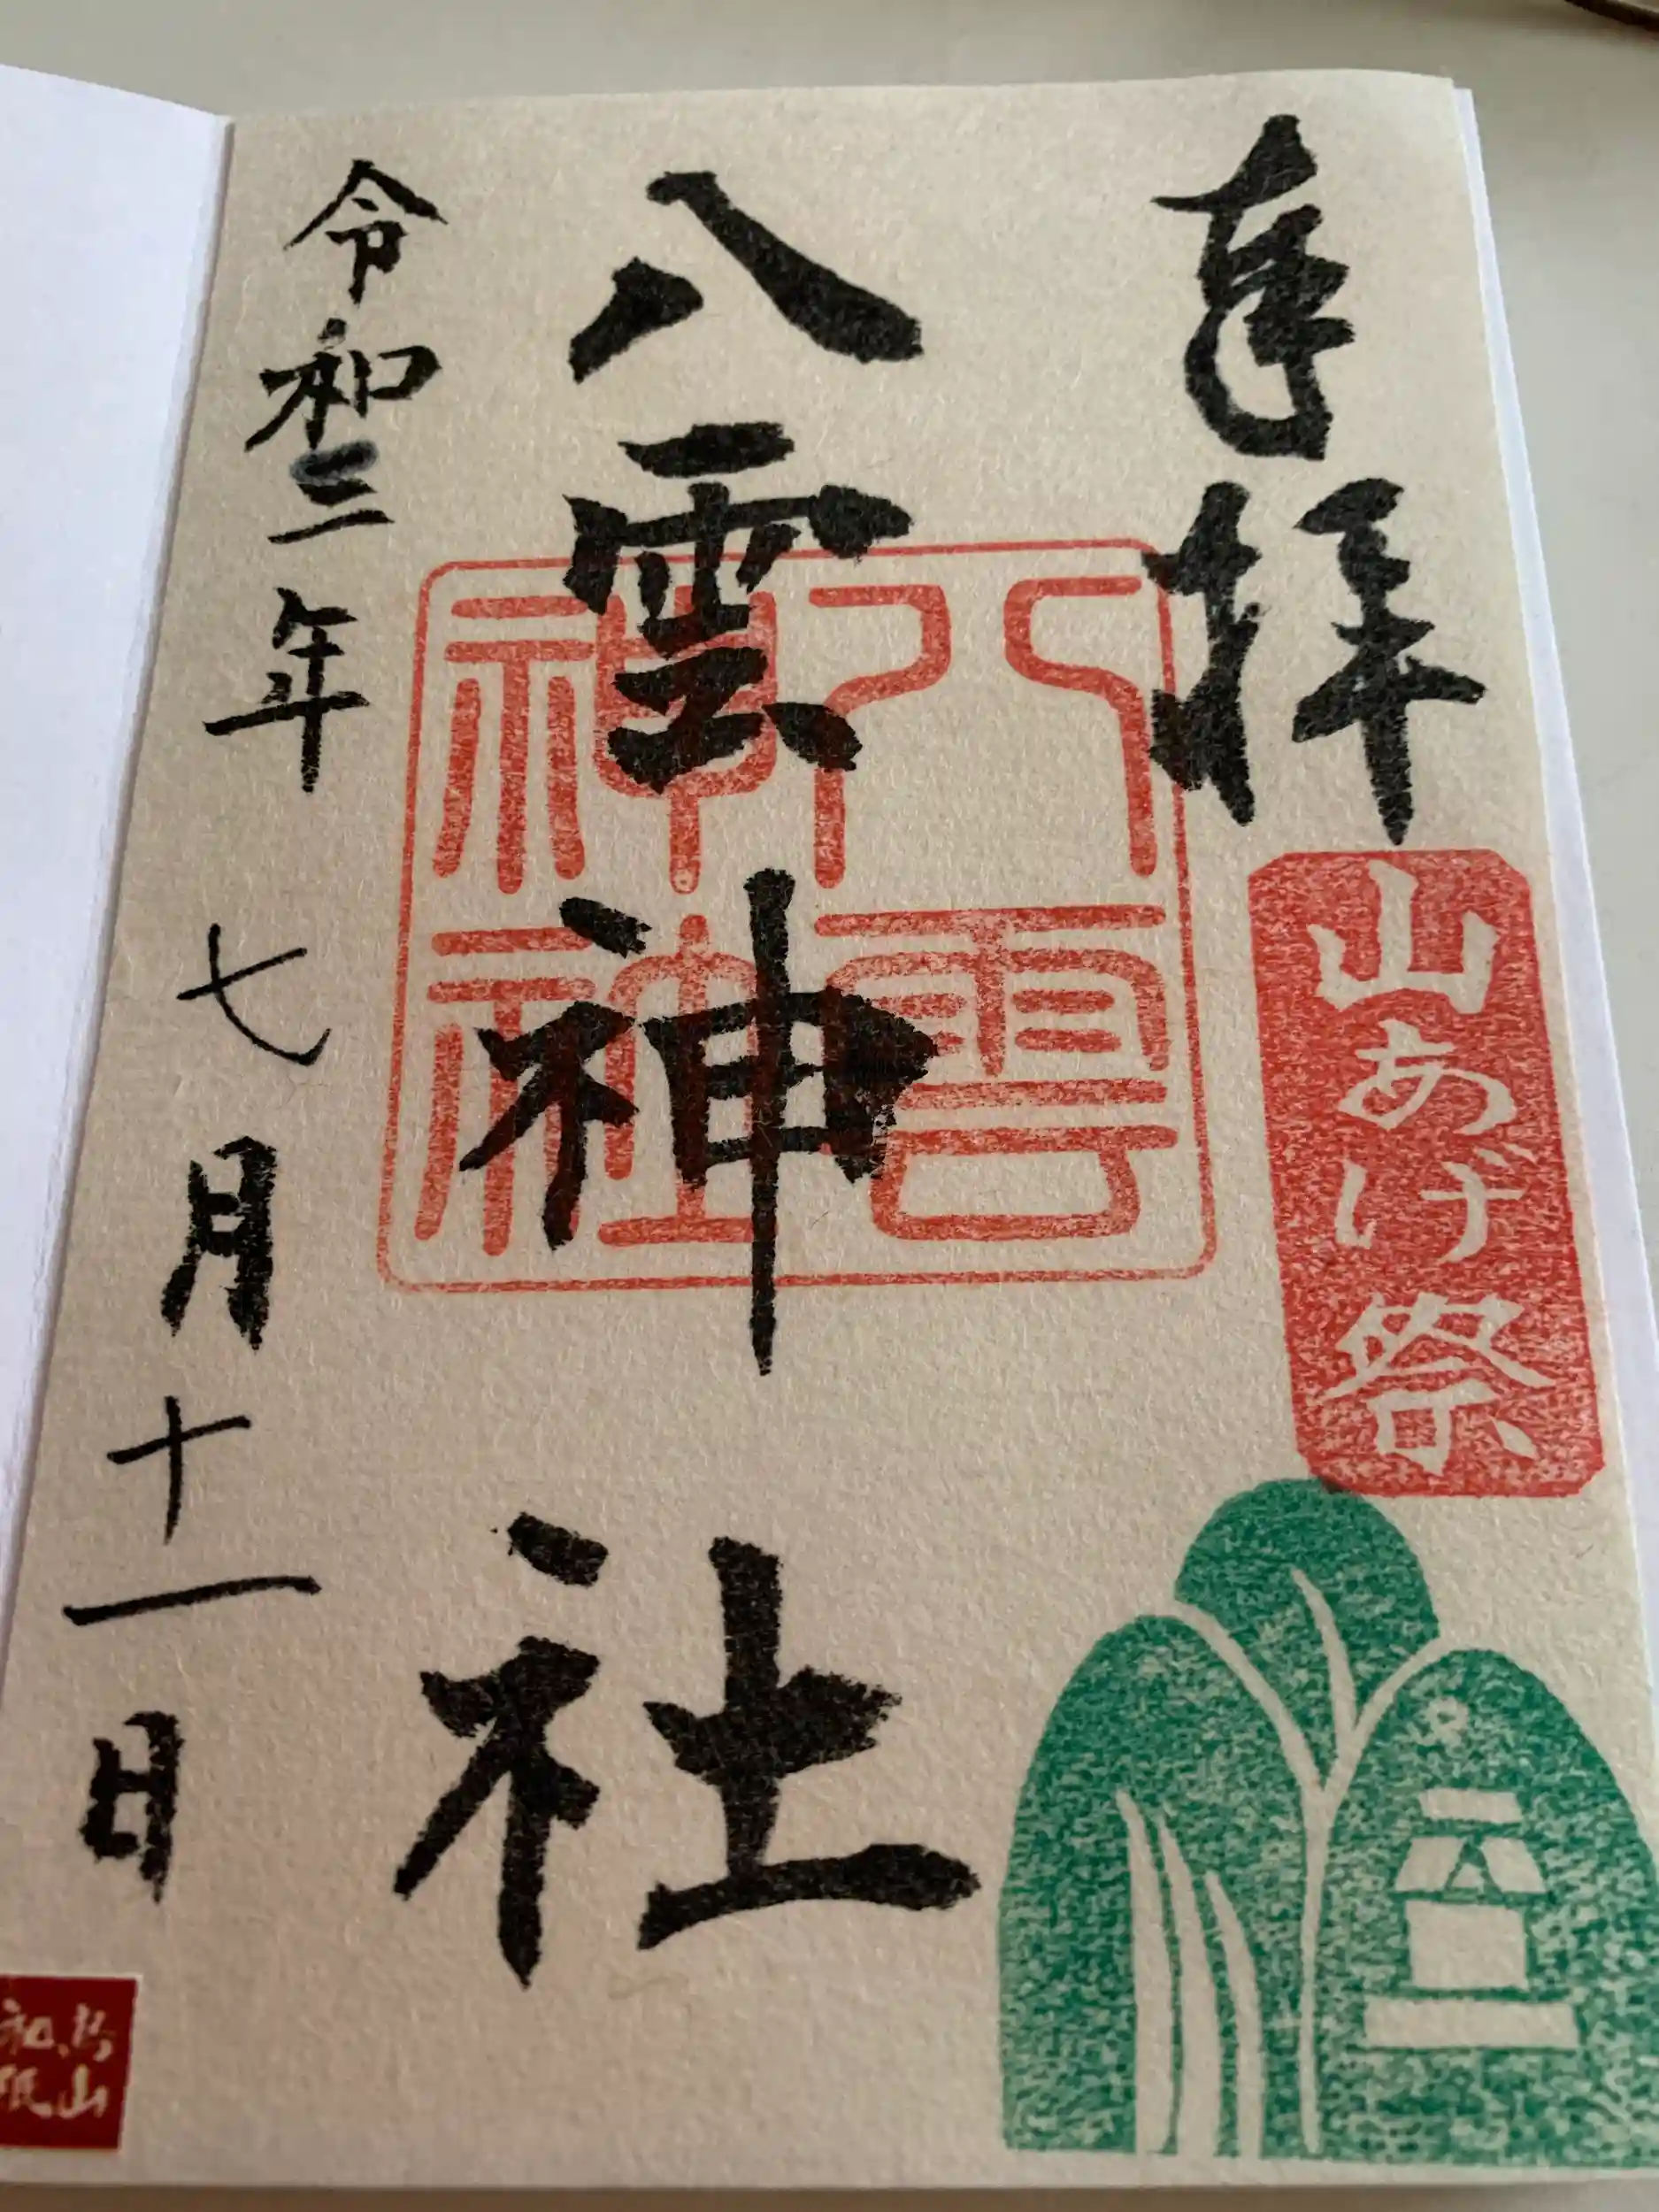 奉拝
山あげ祭
八雲神社
八雲神社
令和三年七月十一日
烏山和紙